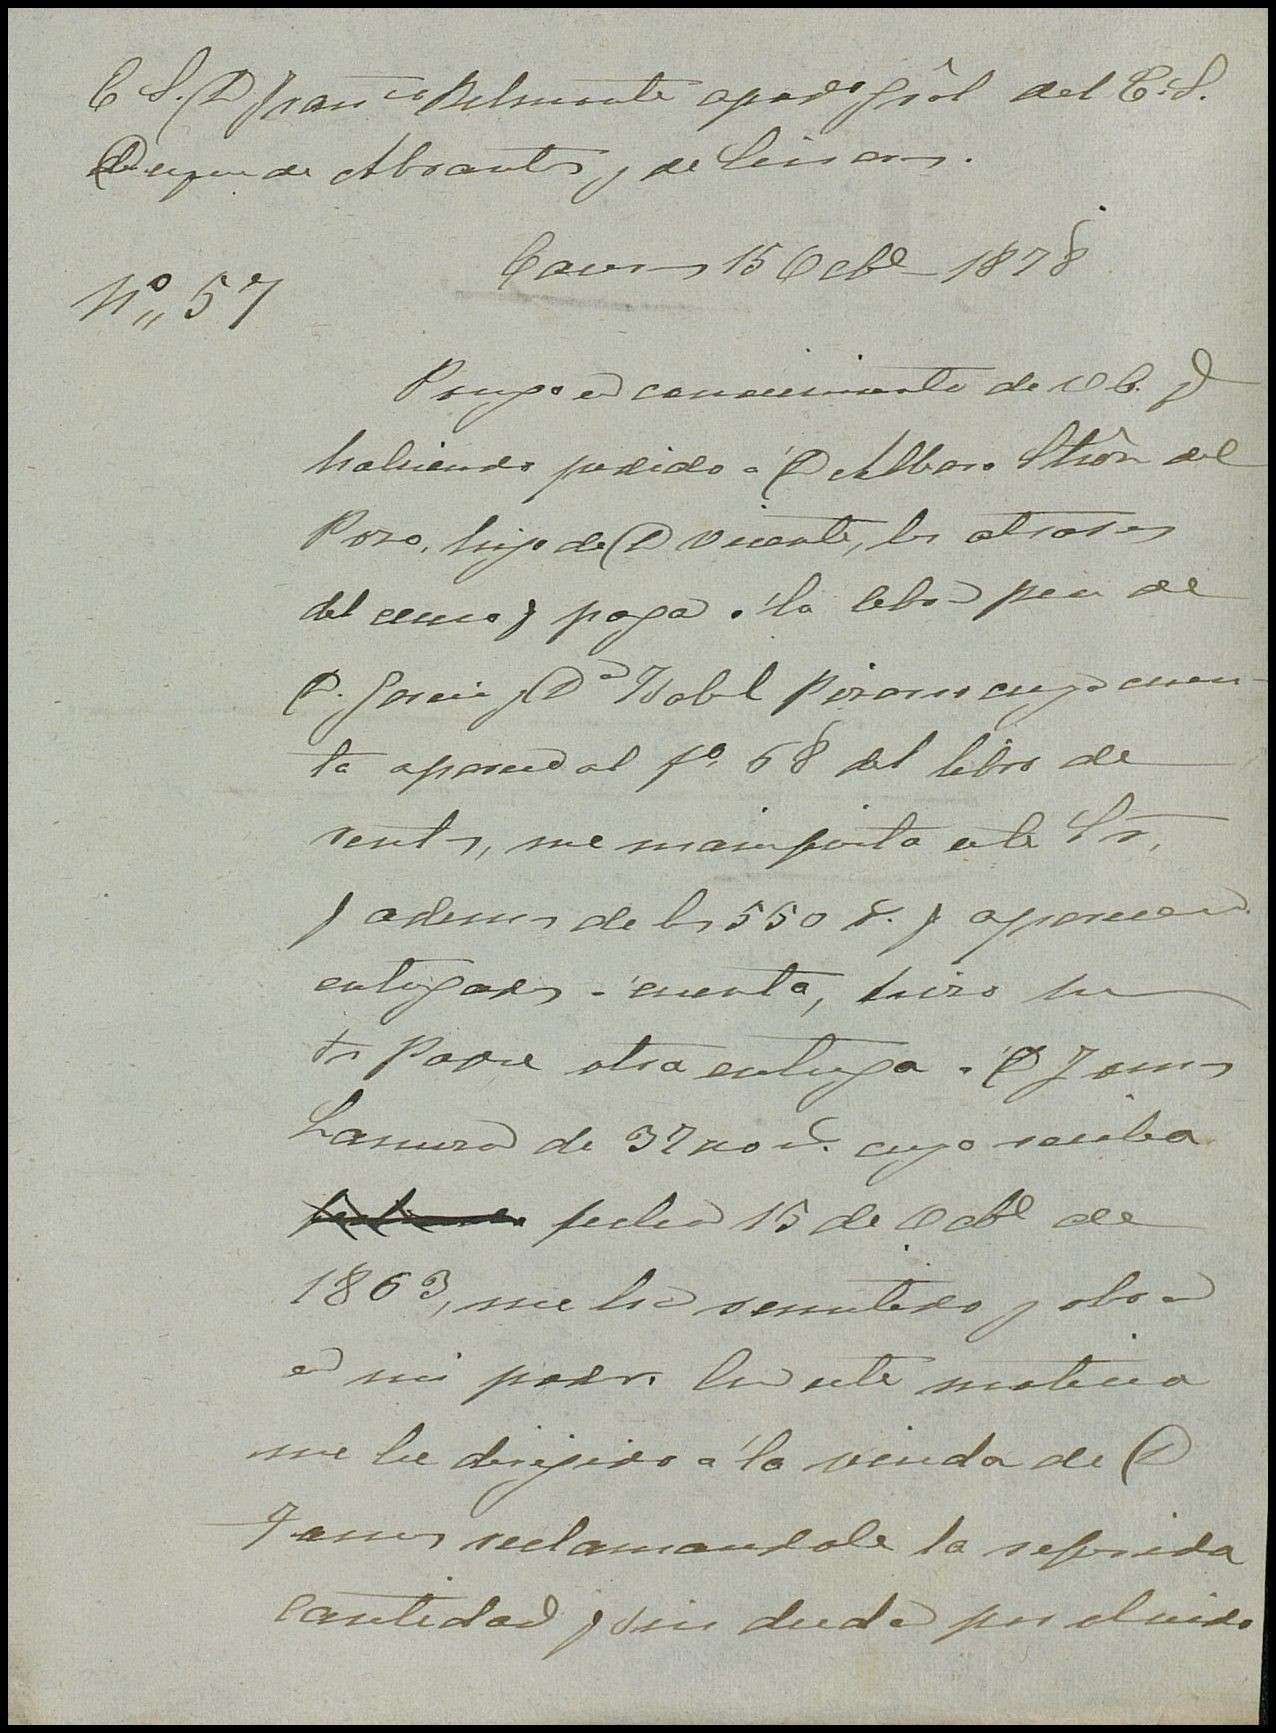 E. S. D. Franco Belmonte apodo gral del E. S.
Duque de Abrantes y de Linares.
Caceres 15 Octbe 1878
No 57
Pongo en conocimiento de V. E. q
habiendo pedido a D Alvaro del
Pozo, hijo de D Vicente, los atrasos
del censo q paga a la de
D. Garcia y Da Isabel cuya cuen-
ta aparece al fo 68 del libro de
rentas, me manifiesta este Sr.
q ademas de los 550 r. q aparecen
entregados a cuenta, hizo su
Sr Padre otra entrega a D James
de 3200 r. cuyo recibo
fecha 15 de Octbe de
1863, me ha remitido y obra
en mi poder. En este
me he dirijido a la viuda de D
James reclamandole la referida
cantidad q sin duda por olvido